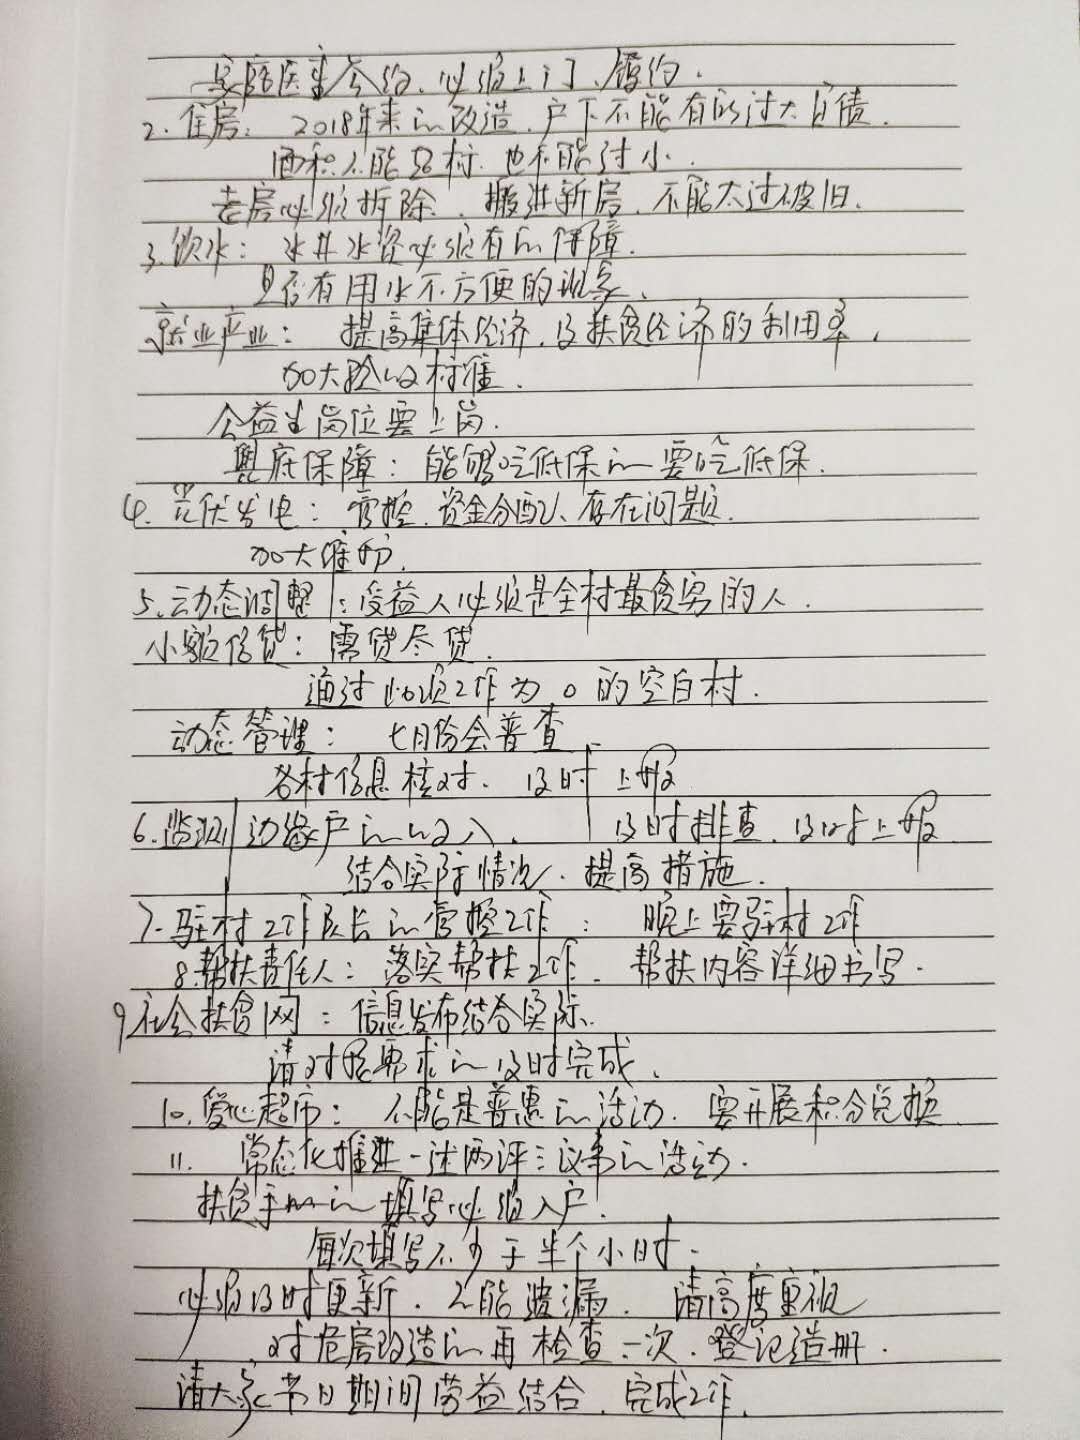 家庭医生签约,必须上门、履约.
2.住房: 2018年来的改造,户下不能有的过大负债.
面积不能超标.也不能过小.
老房必须拆除、搬进新房,不能太过破旧.
3.饮水: 水井水资必须有的保障.
是否有用水不方便的现象、
就业产业: 提高集体经济,及扶贫经济的利用率,
加大验收标准.
公益性岗位要上岗.
兜底保障: 能够吃低保的要吃低保.
4.光伏发电: 管控.资金分配、存在问题.
加大维护.
5.动态调整: 受益人必须是全村最贫穷的人.
小额信贷: 需贷尽贷.
通过此项工作为0的空白村.
动态管理: 七月份会普查
各村信息核对. 及时上报
6.监测边缘户的收入. 及时排查.及时上报
结合实际情况.提高措施.
7.驻村工作队长的管控工作: 晚上要驻村工作
8.帮扶责任人: 落实帮扶工作. 帮扶内容详细书写.
9社会扶贫网: 信息发布结合实际.
请对接需求的及时完成.
10.爱心超市: 不能是普惠的活动. 要开展积分兑换
11. 常态化推进一述两评三议事的活动.
扶贫手册的填写必须入户.
每次填写不少于半个小时.
必须及时更新.不能遗漏. 请高度重视
对危房改造的再检查一次.登记造册.
请大家节日期间劳益结合.完成工作.